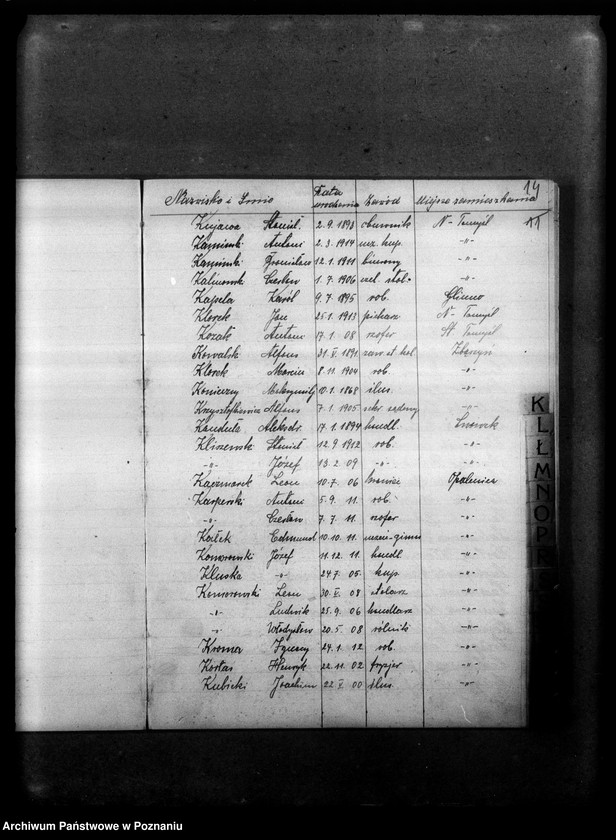 14
Nazwisko i Imię Data urodzenia Zawód Miejsce zamieszkania
Kujawa Stanisł. 2. 9. 1898 N-Tomyśl 11
Kamiński Antoni 2. 3. 1914 ucz. kup. -"-
Kamiński Bronisław 12. 1. 1911 biurowy -"-
Kalinowski Czesław 1. 7. 1906 czel. stol. -"-
Kapela Karól 9. 7. 1895 rob. Glinno
Klorek Jan 25. 1. 1913 piekarz N-Tomyśl
Kozak Antoni 17. 1. 08 szofer St. Tomyśl
Kowalsk Alfons 21. V. 1891 Zbąszyń
Klorek Marcin 8. 11. 1904 rob. -"-
Konieczny Maksymilj 10. 1. 1868 ślus. -"-
Krzysztofkiewicz Alfons 7. 1. 1905 sekr. sądowy -"-
Kandula Aleksdr. 17. 1. 1894 handl. Lwówek
Kliszewsk Stanisł 12. 9. 1912 rob. -"-
-"- Józef 13. 2. 09 -"- -"-
Kaczmarek Leon 10. 7. 06 Opalenica
Kasperski Antoni 5. 9. 11. rob. -"-
-"- Czesław 7. 7. 11. szofer -"-
Kołek Edmund 10. 10. 11. -"-
Komorowski Józef 11. 12. 11. handl -"-
Kluska -"- 24. 7. 05. kup. -"-
Komorowski Leon 30. V. 08 stolarz -"-
-"- Ludwik 25. 9. 06 handlarz -"-
-"- Władysław 20. 5. 08 rolnik -"-
Kroma Ignacy 24. 1. 12 rob. -"-
Kortas Henryk 22. 11. 02 fryzjer -"-
Kubicki Joachim 22. V. 00 ślus. -"-
K
L
Ł
M
N
O
P
R
Archiwum Państwowe w Poznaniu